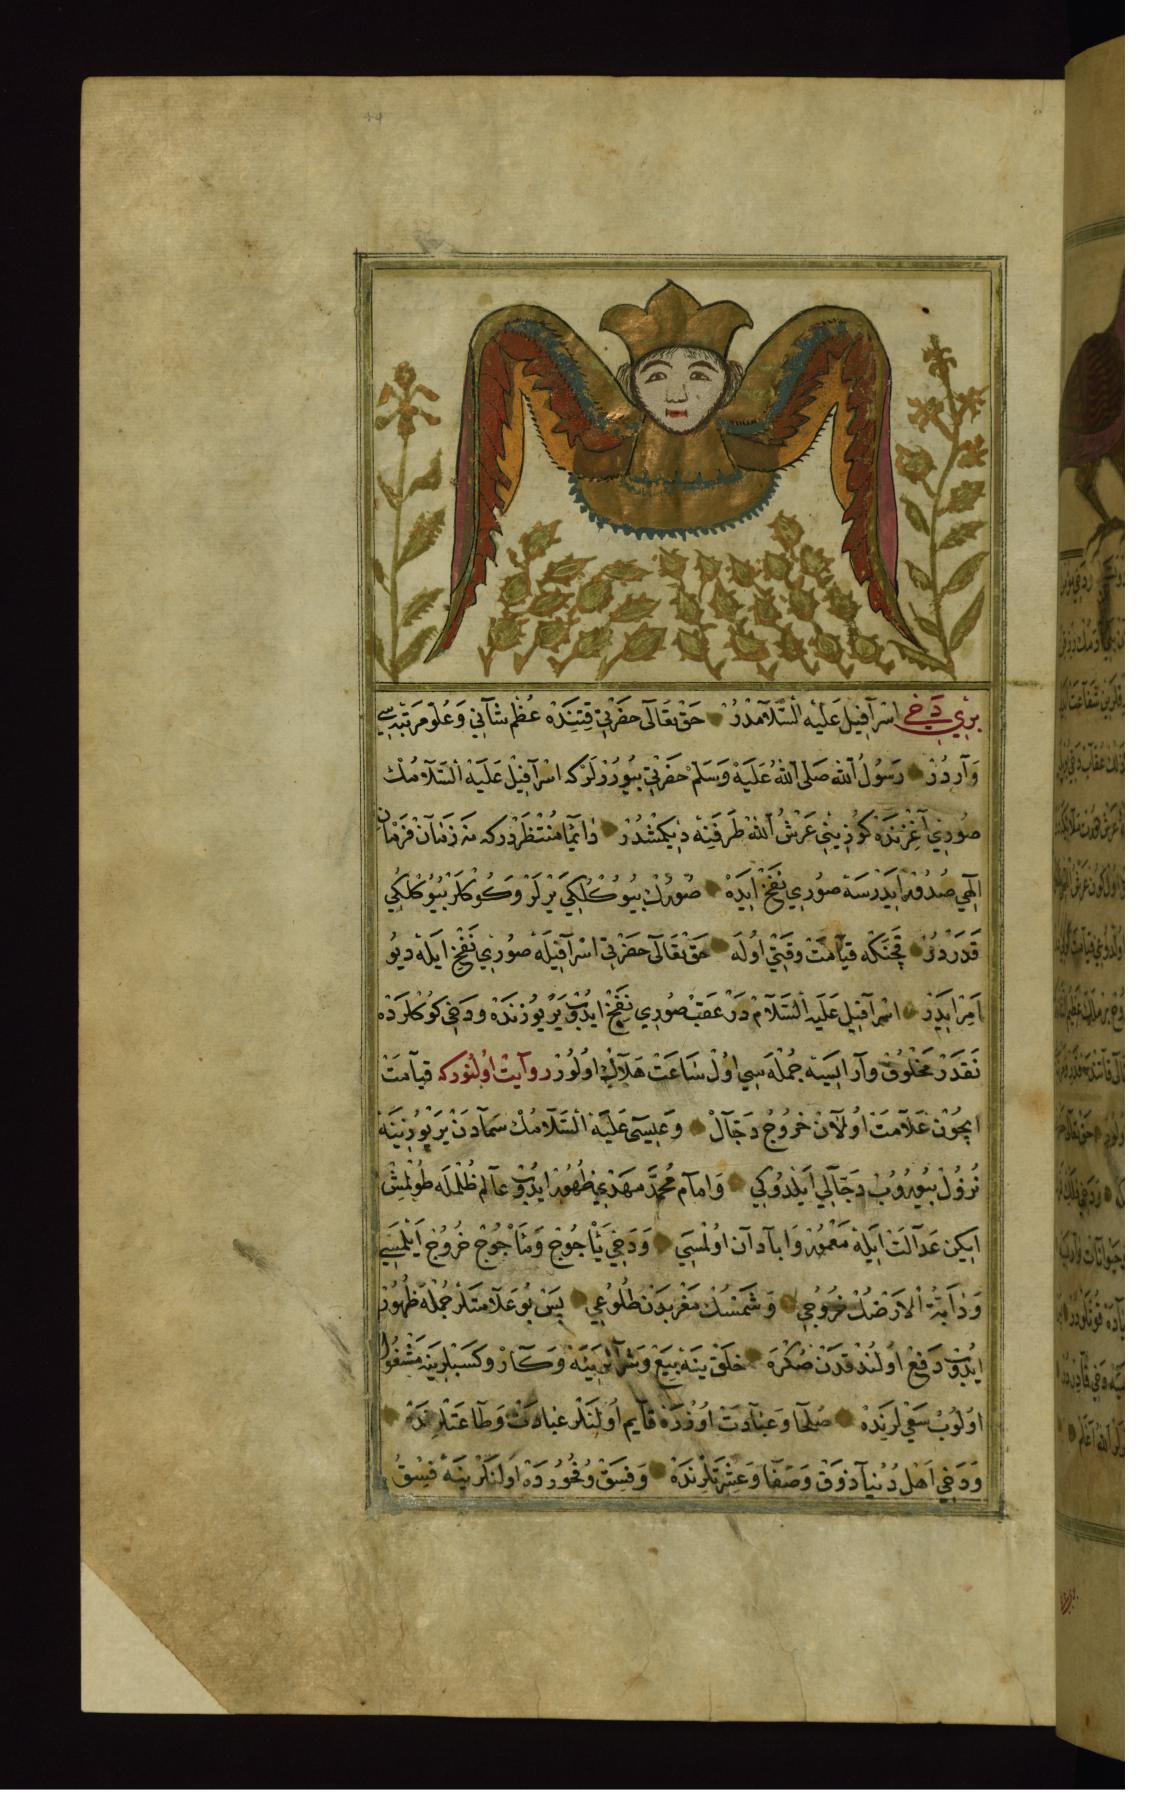 بري دخي اسرافيل عليه السلامدر حق تعالى حضرتي قتنده عظم شاني وعلو مرتبه سي
واردر رسول الله صلى الله عليه وسلم حضرتي بيوررلركه اسرافيل عليه السلامك
صوري آغزنده كوزيني عرش الله طرفينه ديكمشدر دائما منتظردركه نه زمان فرمان
الهي صدور ايدرسه صوري نفخ ايده صورك بيوكلكي يرلر وكوكلر بيوكلكي
قدردر قچنكه قيامت وقتي اوله حق تعالى حضرتي اسرافيله صوري نفخ ايله ديو
امر ايدر اسرافيل عليه السلام در عقب صوري نفخ ايدوب ير يوزنده ودخي كوكلرده
نقدر مخلوق وار ايسه جمله سي اول ساعت هلاك اولور روايت اولنوركه قيامت
ايچون علامت اولان خروج دجال وعيسى عليه السلامك سمادن ير يوزينه
نزول بيوروب دجالي ايلدوكي وامام محمد مهدي ظهور ايدوب عالم ظلمله طولمش
ايكن عدالت ايله معمور وابادان اولمسي ودخي ياجوج وماجوج خروج ايلمسي
ودابة الارضك خروجي وشمسك مغربدن طلوعي پس بو علامتلر جمله ظهور
ايدوب دفع اولندقدن صكره خلق ينه بيع وشرالرينه وكار وكسبلرينه مشغول
اولوب سعيلرنده صلحا وعبادت اوزره قايم اولنلر عبادت وطاعتلرنده
ودخي اهل دنيا ذوق وصفا وعشرتلرنده وفسق وفجورده اولنلر ينه فسق